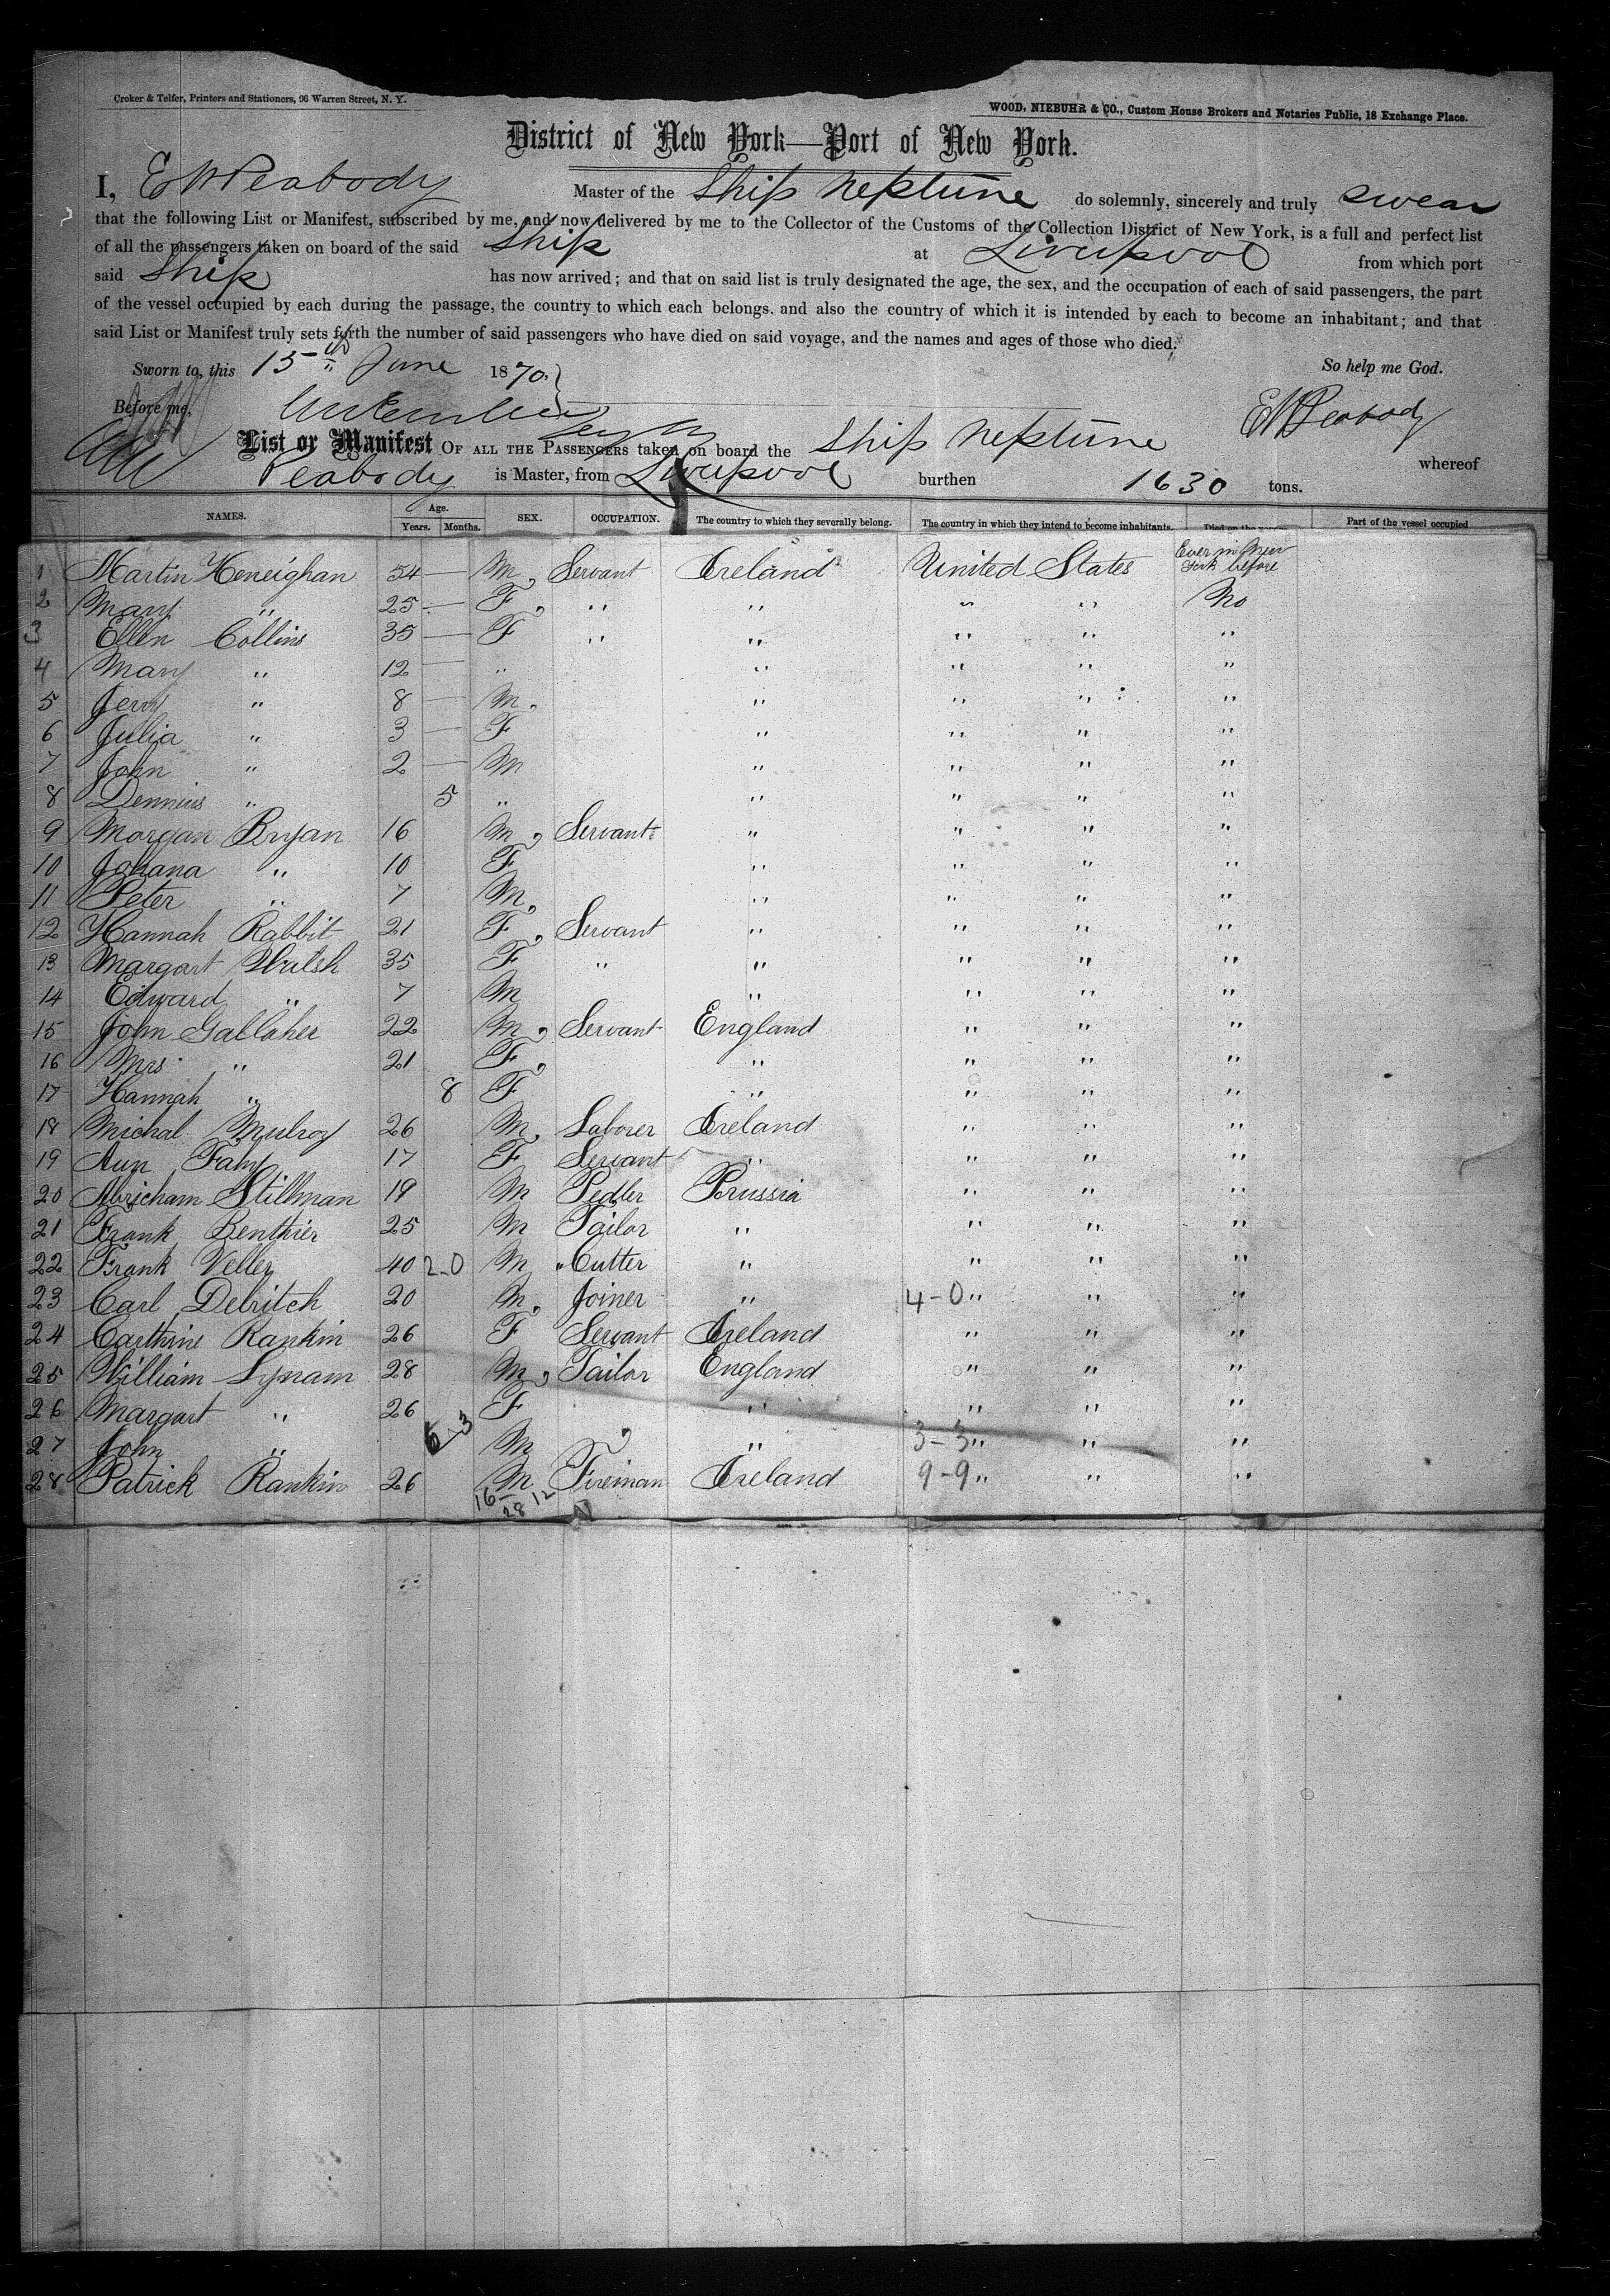 Croker & Telfer, Printers and Stationers, 96 Warren Street, N. Y.
WOOD, NIEBUHR & CO., Custom House Brokers and Notaries Public, 18 Exchange Place.
District of New York—Port of New York.
I, E W Peabody Master of the Ship Neptune do solemnly, sincerely and truly swear
that the following List or Manifest, subscribed by me, and now delivered by me to the Collector of the Customs of the Collection District of New York, is a full and perfect list
of all the passengers taken on board of the said Ship at Liverpool from which port
said Ship has now arrived; and that on said list is truly designated the age, the sex, and the occupation of each of said passengers, the part
of the vessel occupied by each during the passage, the country to which each belongs, and also the country of which it is intended by each to become an inhabitant; and that
said List or Manifest truly sets forth the number of said passengers who have died on said voyage, and the names and ages of those who died.
Sworn to, this 15th June 1870. So help me God.
Before me, E W Peabody
List or Manifest OF ALL THE PASSENGERS taken on board the Ship Neptune whereof
Peabody is Master, from Liverpool burthen 1630 tons.
NAMES. Age. Years. Months. SEX. OCCUPATION. The country to which they severally belong. The country in which they intend to become inhabitants. Died on the voyage. Part of the vessel occupied
1 Martin Heneighan 54 — M Servant Ireland United States Ever in New York before
2 Mary " 25 — F " " " " No
3 Ellen Collins 35 — F " " " " "
4 Mary " 12 — " " " " "
5 Jerry " 8 — M " " " "
6 Julia " 3 — F " " " "
7 John " 2 — M " " " "
8 Dennius " 5 " " " " "
9 Morgan Bryan 16 M Servant " " " "
10 Johana " 10 F " " " "
11 Peter " 7 M " " " "
12 Hannah Rabbit 21 F Servant " " " "
13 Margart Walsh 35 F " " " " "
14 Edward " 7 M " " " "
15 John Gallaher 22 M Servant England " " "
16 Mrs " 21 F " " " "
17 Hannah " 8 F " " " "
18 Michal Mulroy 26 M Laborer Ireland " " "
19 Ann Fahy 17 F Servant " " " "
20 Abricham Stillman 19 M Pedler Prussia " " "
21 Frank Benthier 25 M Tailor " " " "
22 Frank Veller 40 2-0 M " Cutter " " " "
23 Carl Debritch 20 M Joiner " 4-0 " " "
24 Carthrine Rankin 26 F Servant Ireland " " "
25 William Lynam 28 M Tailor England " " "
26 Margart " 26 F " " " "
27 John " 6-3 M " 3-3 " " "
28 Patrick Rankin 26 M Fireman Ireland 9-9 " " "
16-12
28